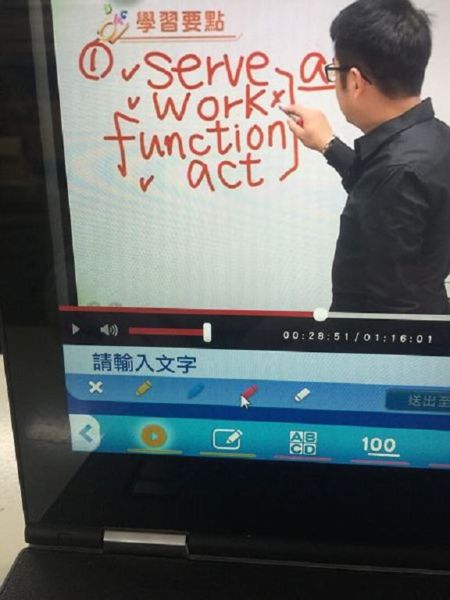 學習要點
① ✓ serve as
✓ work ×
function
✓ act
00:28:51/01:16:01
請輸入文字
送出至
AB
CD
100